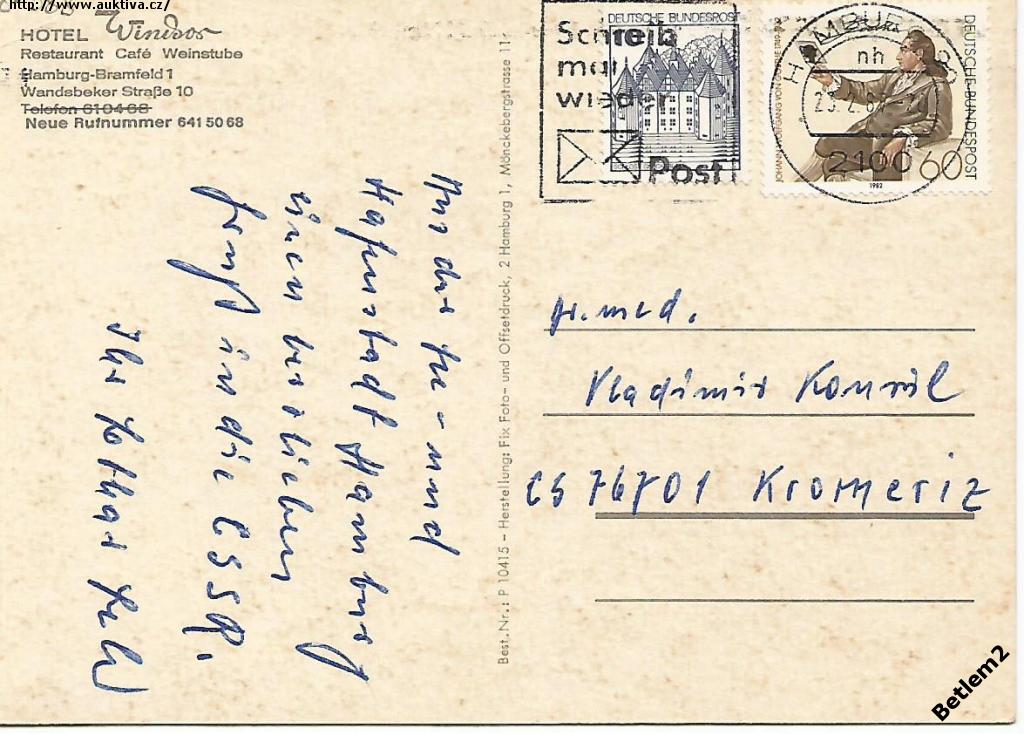 http://www.auktiva.cz/
HOTEL Windsor
Restaurant Café Weinstube
Hamburg-Bramfeld 1
Wandsbeker Straße 10
Telefon 61 04 68
Neue Rufnummer 641 50 68
Schreib
mal
wieder
Post
DEUTSCHE BUNDESPOST
HAMBURG 90
nh
2100
DEUTSCHE BUNDESPOST
60
1982
Aus der See- und
Hafenstadt Hamburg
einen herzlichen
Gruß in die CSSR.
Ihr Lothar
Best. Nr.: P 10415 – Herstellung: Fix Foto- und Offsetdruck, 2 Hamburg 1, Mönckebergstrasse 11
Dr. med.
Vladimir
CS 76701 Kromeriz
Betlem2